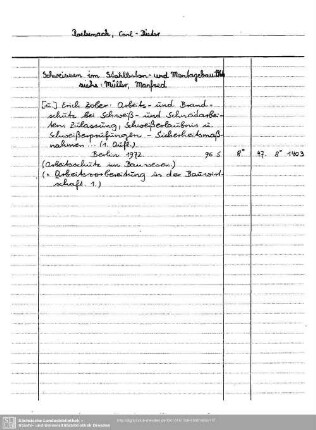 Schweissen im Stahlbeton- und Montagebau
siehe Müller, Manfred
[u.] Erich Zober: Arbeits- und Brand-
schutz bei Schweiß- und Schneidarbei-
ten Zulassung, Schweißerlaubnis u.
Schweißerprüfungen - Sicherheitsmaß-
nahmen ... (1. Aufl.)
Berlin 1972. 96 S 8° 47. 8° 1403
(Arbeitsschutz im Bauwesen)
(= Arbeitsvorbereitung in der Bauwirt-
schaft. 1.)
Sächsische Landesbibliothek -
Staats- und Universitätsbibliothek Dresden